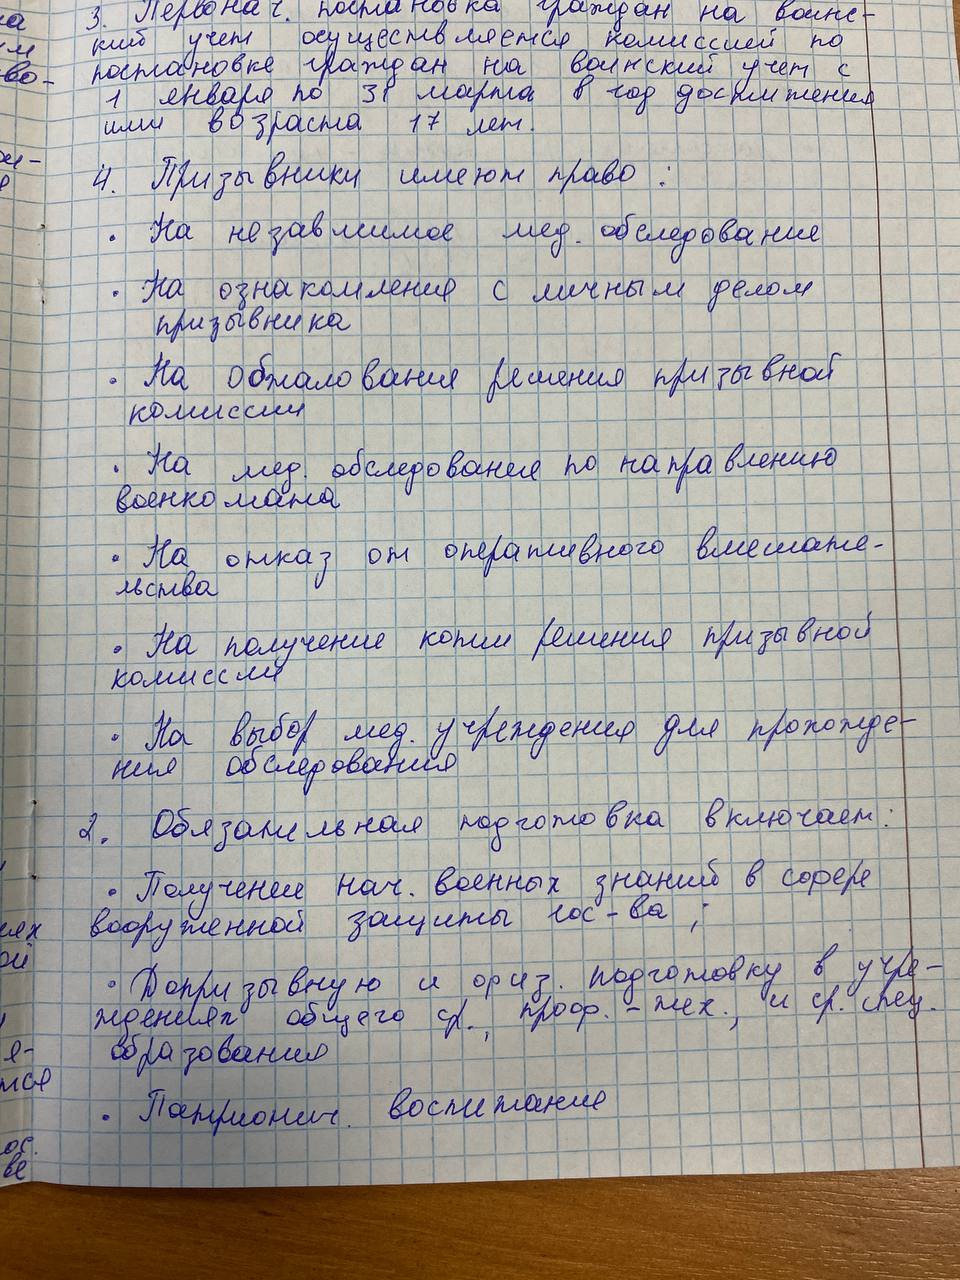 3. Первонач. постановка граждан на воинс-
кий учет осуществляется комиссией по
постановке граждан на воинский учет с
1 января по 31 марта в год достижения
ими возраста 17 лет.
4. Призывники имеют право:
• На независимое мед. обследование
• На ознакомления с личным делом
призывника
• На обжалования решения призывной
комиссии
• На мед. обследование по направлению
военкомата
• На отказ от оперативного вмешате-
льства
• На получение копии решения призывной
комиссии
• На выбор мед. учреждения для прохожде-
ния обследования
2. Обязательная подготовка включает:
• Получение нач. военных знаний в сфере
вооруженной защиты гос-ва;
• Допризывную и физ. подготовку в учре-
ждениях общего ср., проф.-тех., и ср. спец.
образования
• Патриотич. воспитание